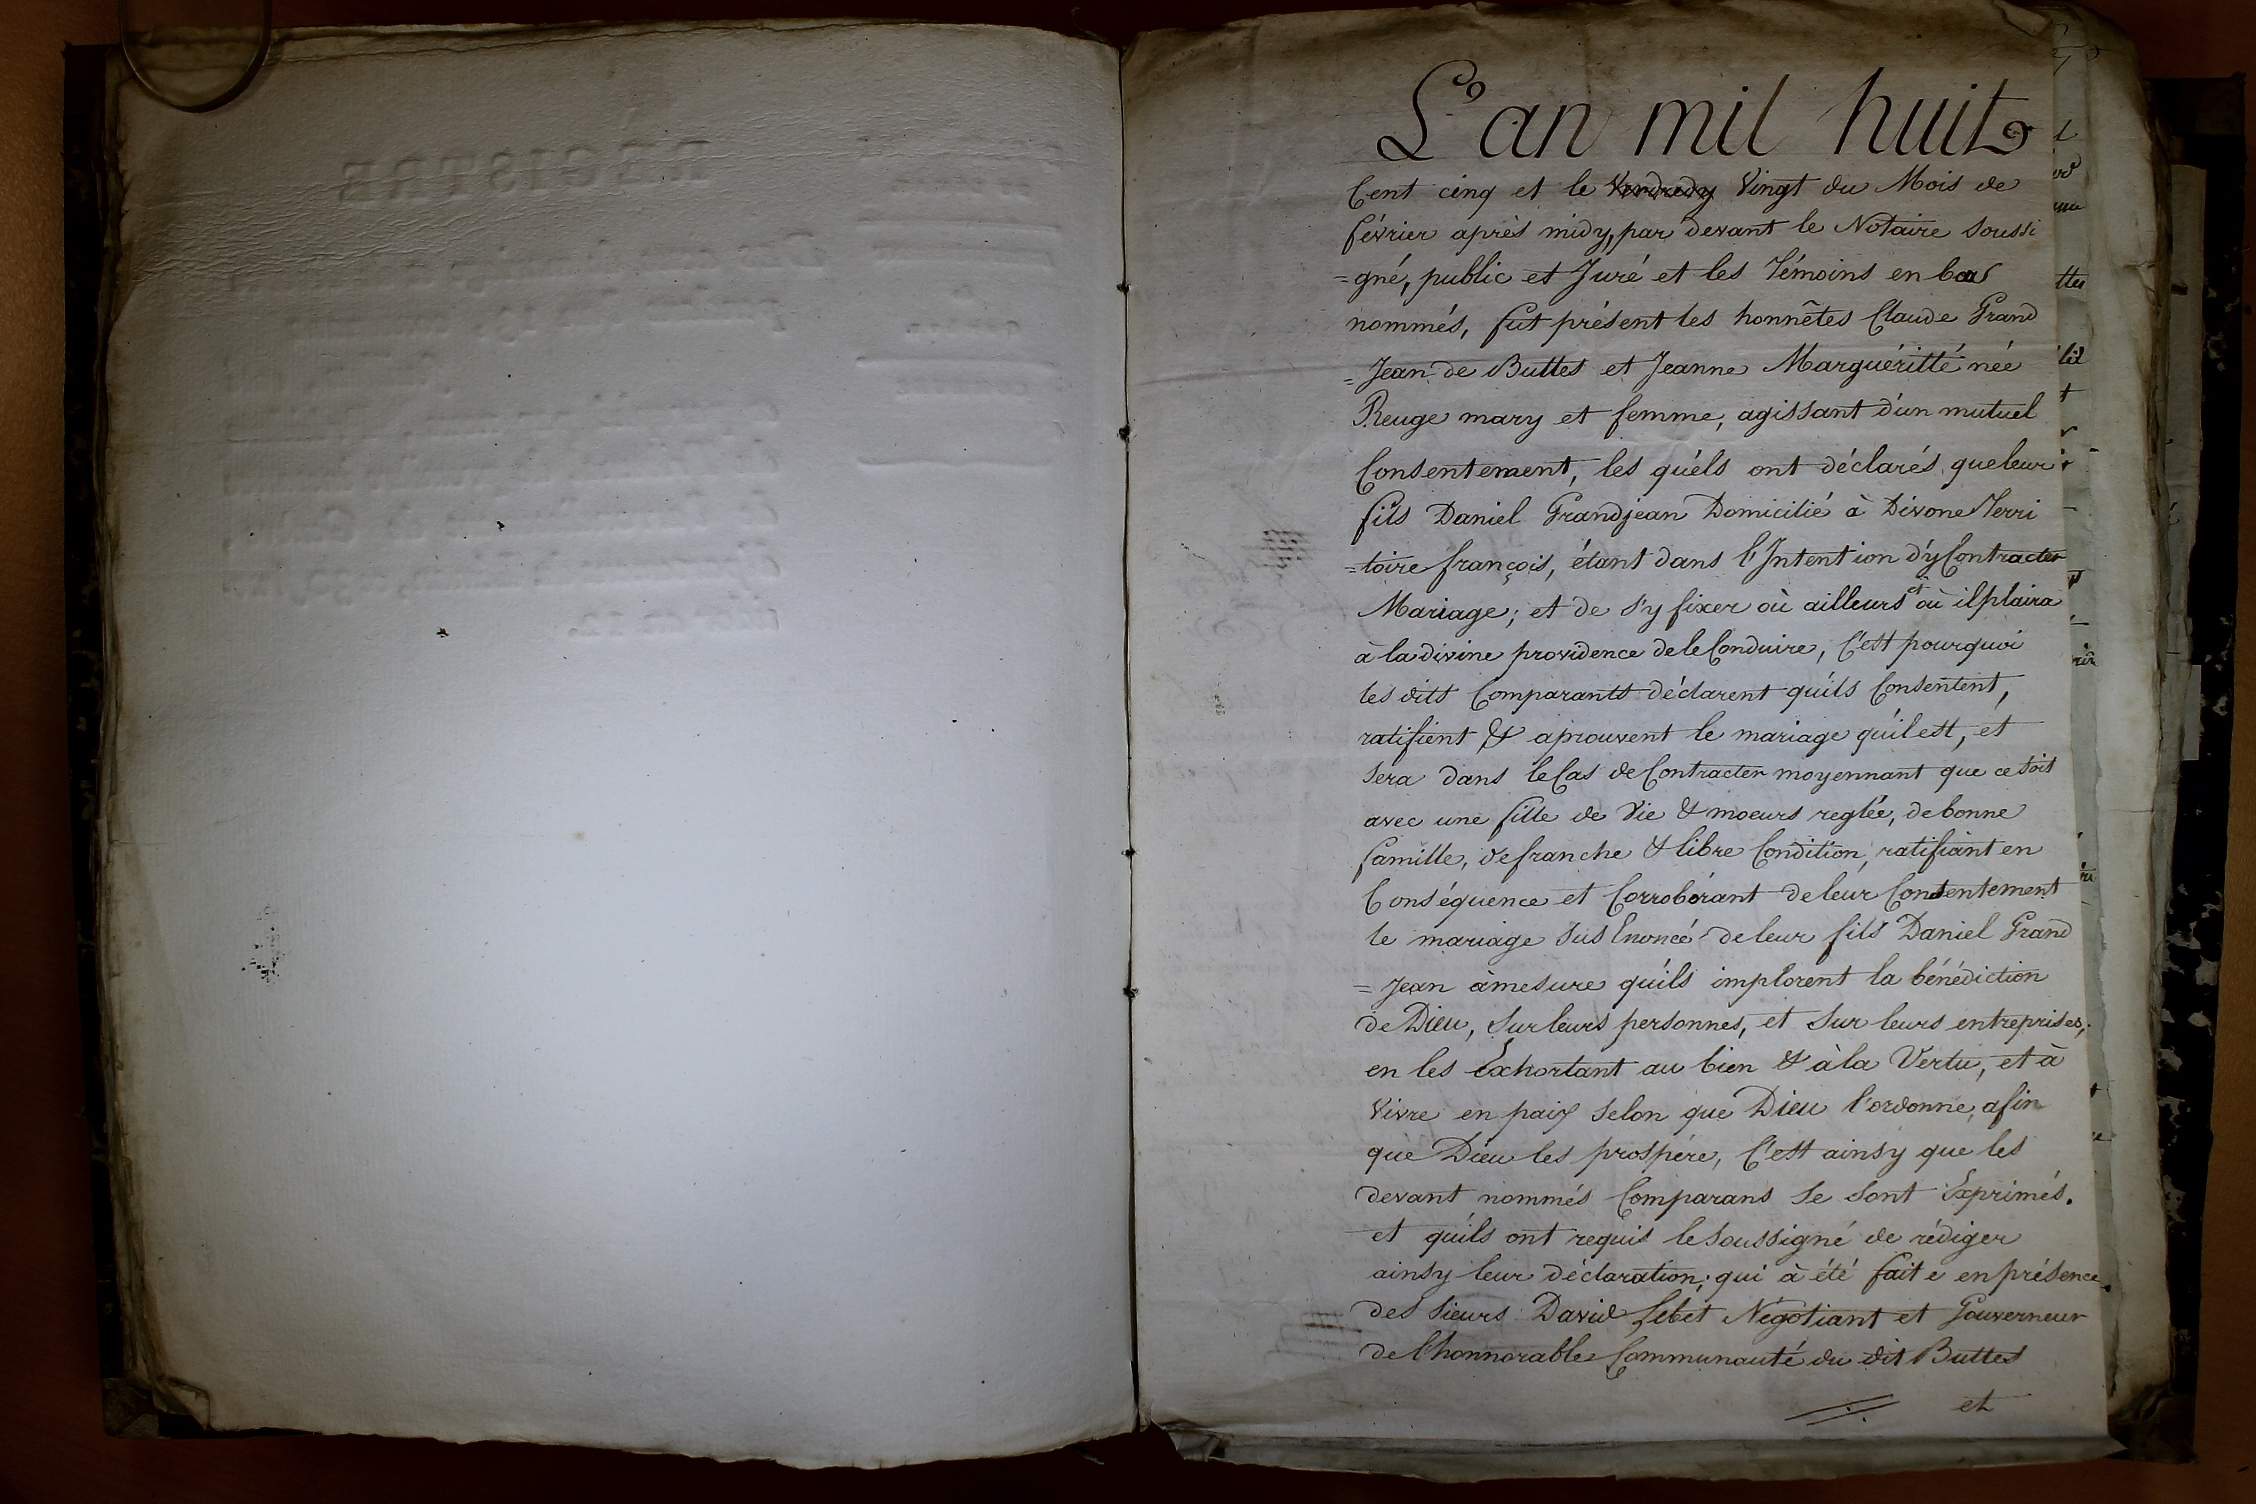 REGISTRE
L'an mil huit
Cent cinq et le Vendredy Vingt du Mois de
février après midy, par devant le Notaire soussi
=gné, public et Juré et les Témoins en bas
nommés, fut présent les honnêtes Claude Grand
=Jean de Buttes et Jeanne Marguéritte née
Reuge mary et femme, agissant d'un mutuel
Consentement, les quéls ont déclarés que leur
fils Daniel Grandjean Domicilié à Divone Terri
=toire françois, étant dans l'Intention d'y Contracter
Mariage; et de s'y fixer où ailleurs et où il plaira
à la divine providence de le Conduire, C'est pourquoi
les dits Comparants déclarent qu'ils Consentent,
ratifient & aprouvent le mariage qu'il est, et
sera dans le Cas de Contracter moyennant que ce soit
avec une fille de Vie & moeurs reglée, de bonne
famille, de franche & libre Condition, ratifiant en
Conséquence et Corroborant de leur Consentement
le mariage sus Enoncé de leur fils Daniel Grand
=Jean àmesure qu'ils implorent la bénédiction
de Dieu, sur leurs personnes, et sur leurs entreprises,
en les Exhortant au bien & à la Vertu, et à
Vivre en paix selon que Dieu l'ordonne, afin
que Dieu les prospére, C'est ainsy que les
devant nommés Comparans se sont Exprimés.
et qu'ils ont requis le soussigné de rédiger
ainsy leur déclaration; qui à été faite en présence
des sieurs David Lebet Négotiant et Gouverneur
de l'honnorable Communauté du dit Buttes
et